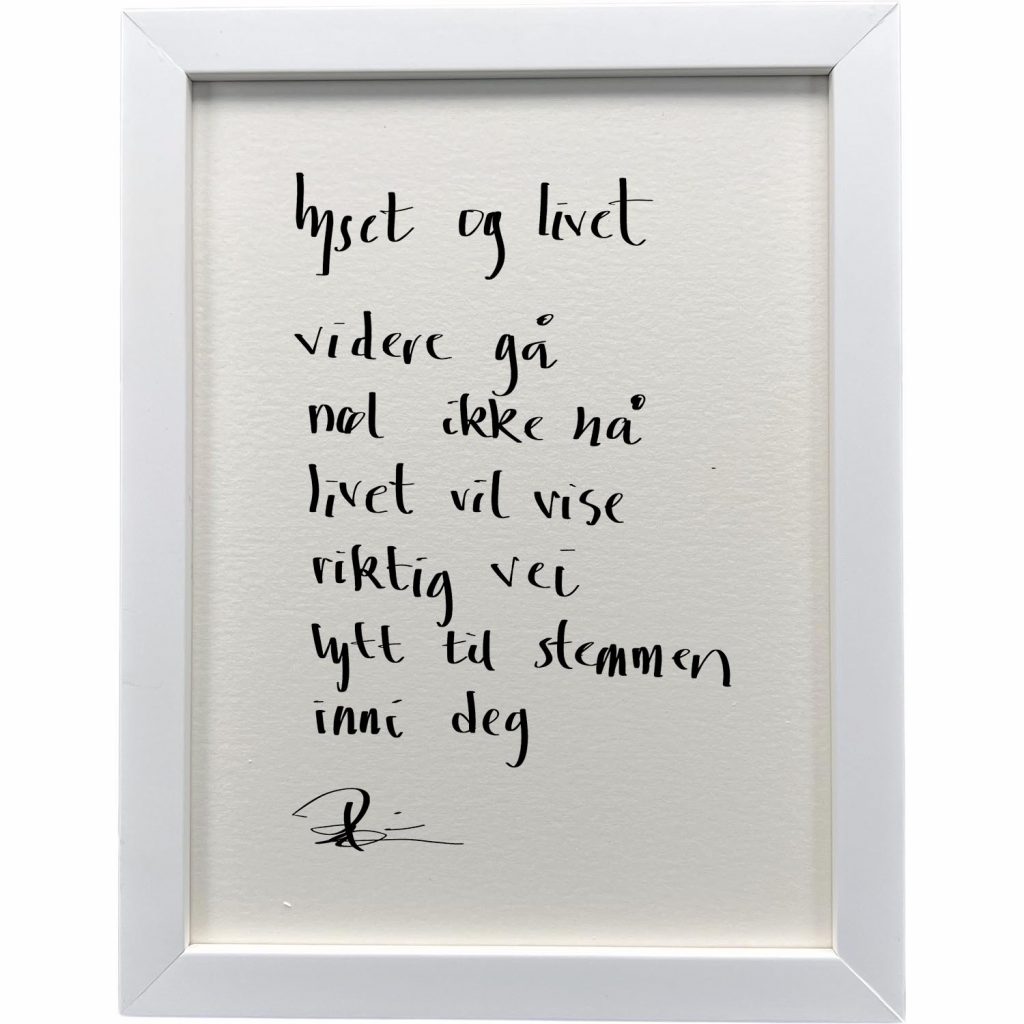 lyset og livet
videre gå
nøl ikke nå
livet vil vise
riktig vei
lytt til stemmen
inni deg